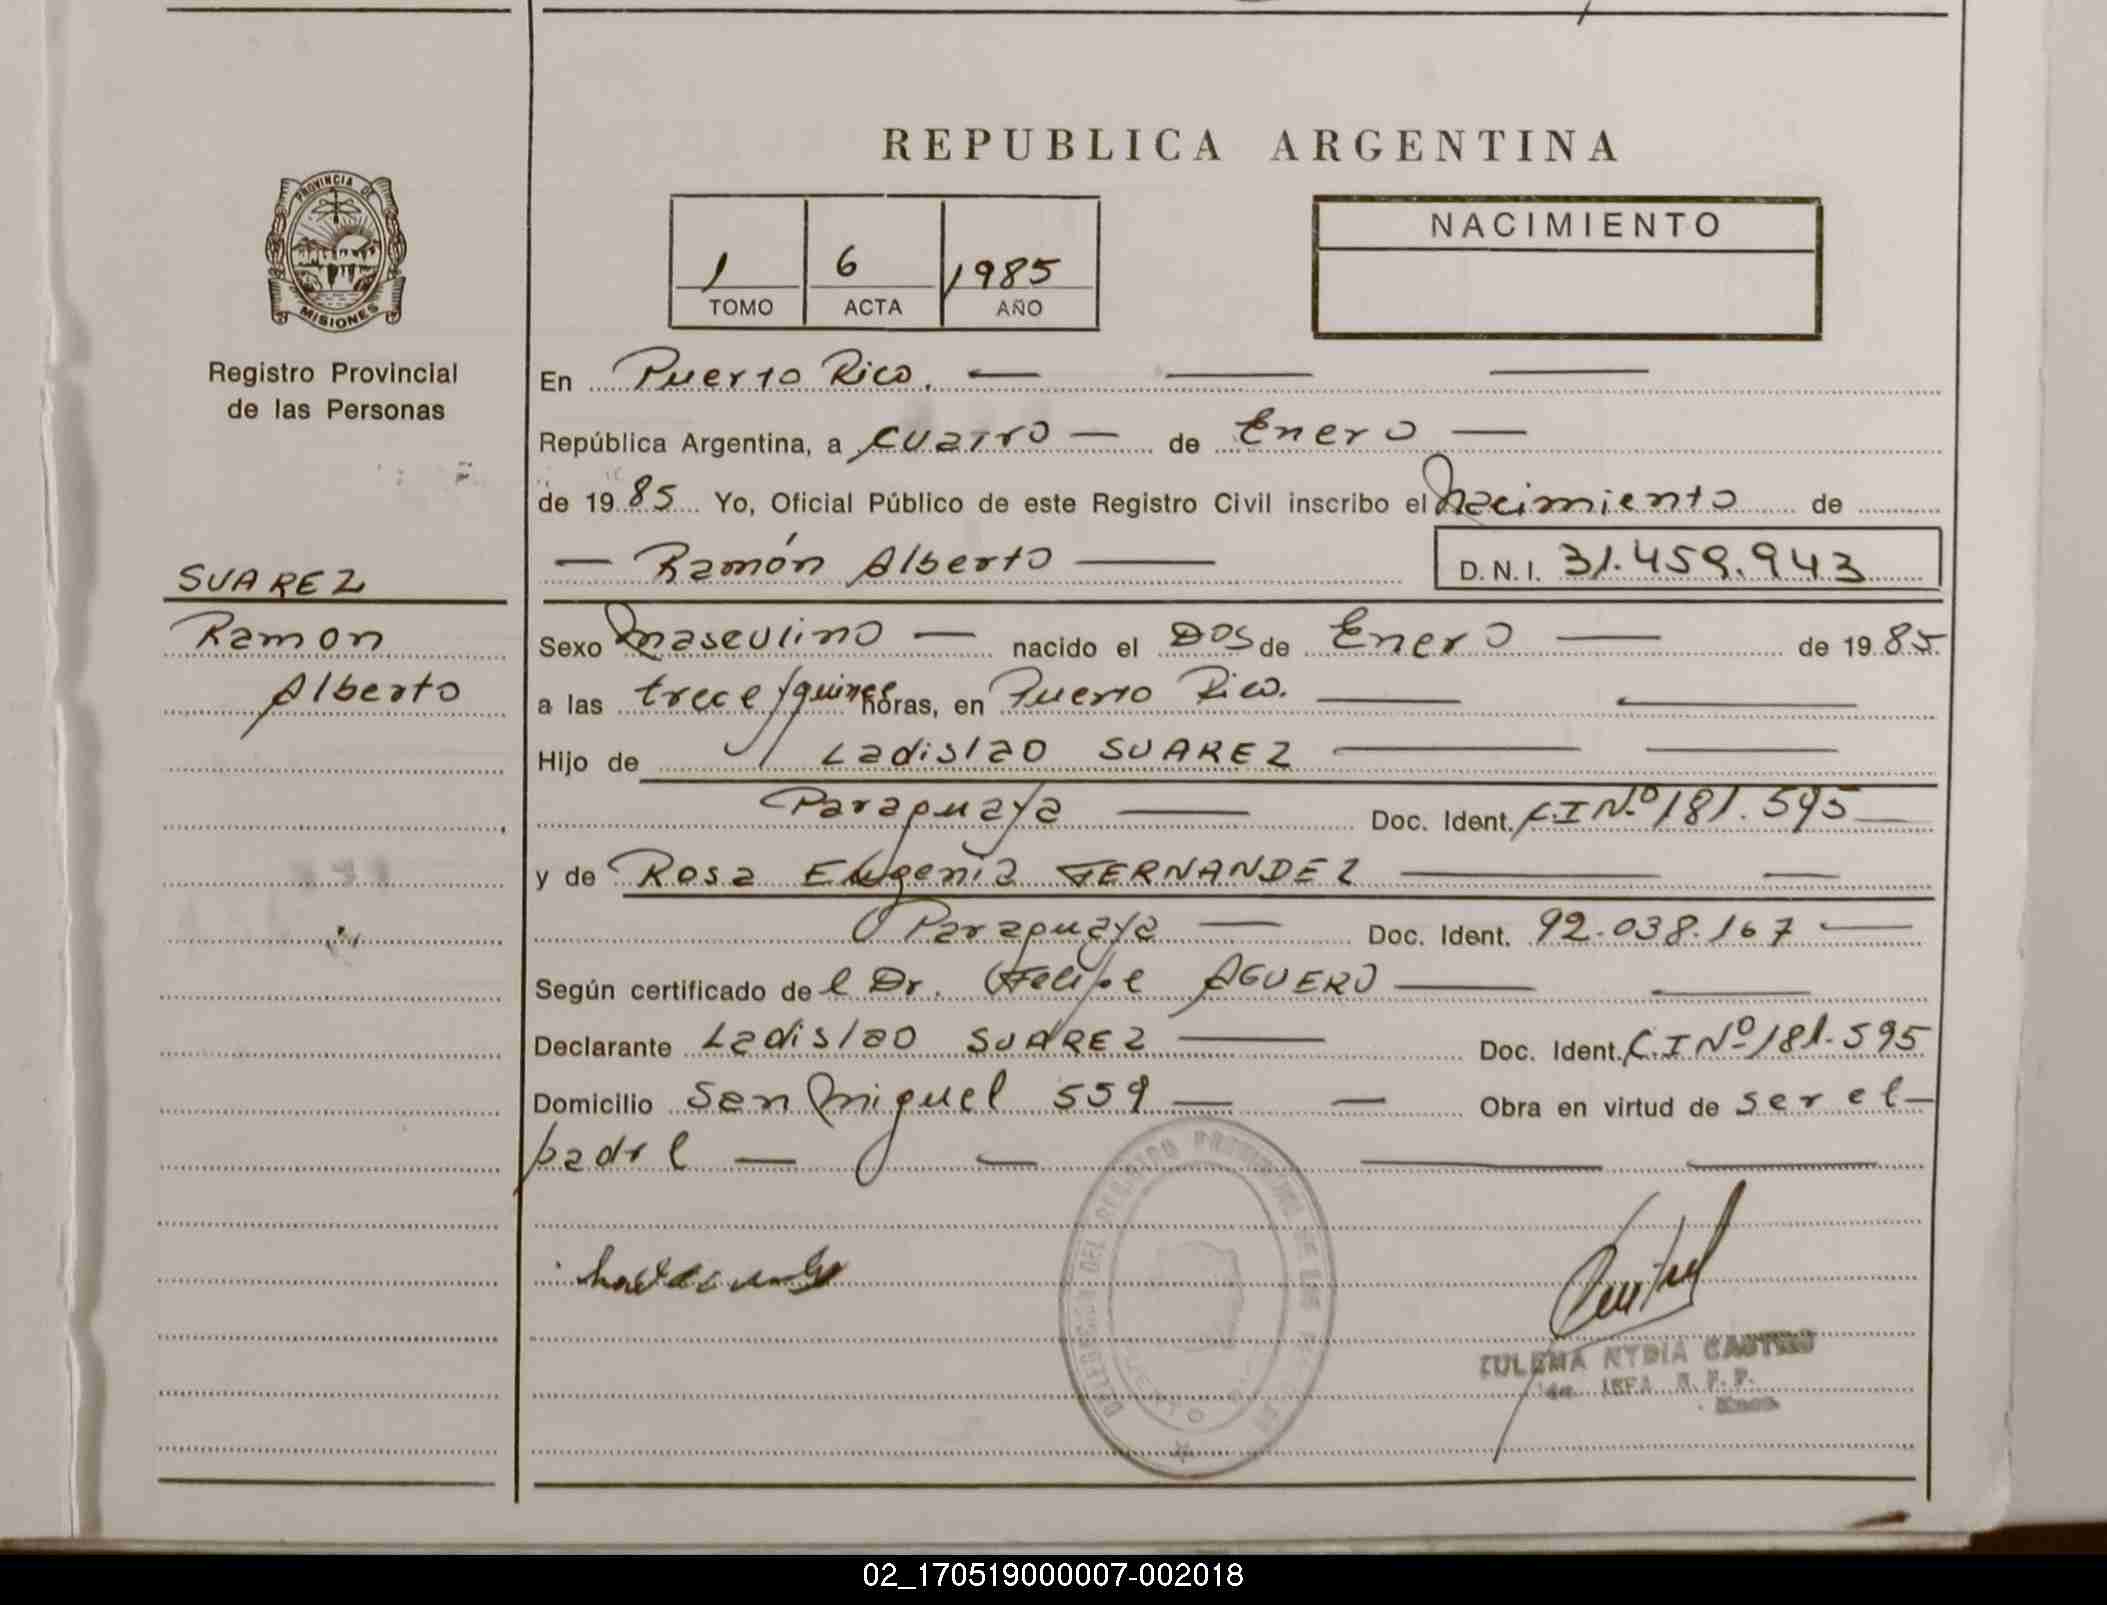 REPUBLICA ARGENTINA
PROVINCIA DE
MISIONES
Registro Provincial
de las Personas
NACIMIENTO
1 6 1985
TOMO ACTA AÑO
En Puerto Rico.
República Argentina, a cuatro de Enero
de 1985 Yo, Oficial Público de este Registro Civil inscribo el Nacimiento de
Ramón Alberto D.N.I. 31.459.943
SUAREZ
Ramon
Alberto
Sexo Masculino nacido el Dos de Enero de 1985
a las trece y quince horas, en Puerto Rico.
Hijo de Ladislao SUAREZ
Paraguaya Doc. Ident. C.I Nº 181.595
y de Rosa Eugenia FERNANDEZ
Paraguaya Doc. Ident. 92.038.167
Según certificado del Dr. Felipe AGUERO
Declarante Ladislao SUAREZ Doc. Ident. C.I Nº 181.595
Domicilio San Miguel 559 Obra en virtud de ser el
padre
ZULEMA NYDIA CASTRO
02_170519000007-002018